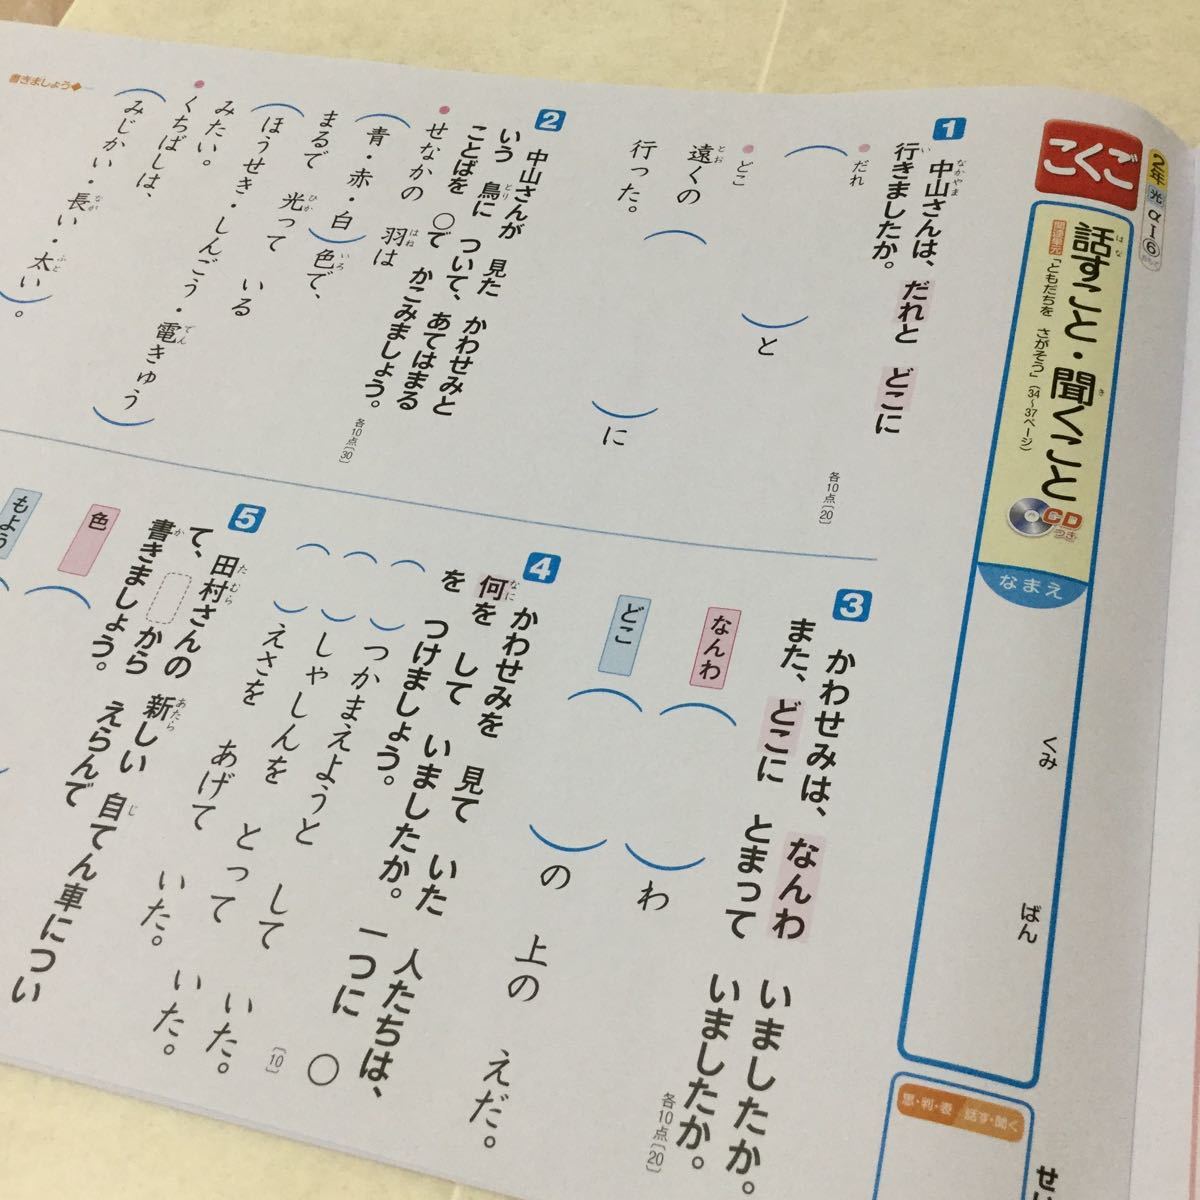 2年 光 α1⑥
こくご
話すこと・聞くこと
関連単元「ともだちを さがそう」(34~37ページ)
CDつき
なまえ
くみ
ばん
思・判・表 話す・聞く
1 中山さんは、だれと どこに
行きましたか。
各10点〔20〕
だれ
( )と
どこ
遠くの( )に
行った。
2 中山さんが 見た かわせみと
いう 鳥に ついて、あてはまる
ことばを ○で かこみましょう。
各10点〔30〕
せなかの 羽は
(青・赤・白)色で、
まるで 光って いる
(ほうせき・しんごう・電きゅう)
みたい。
くちばしは、
(みじかい・長い・太い)。
書きましょう◆
3 かわせみは、なんわ いましたか。
また、どこに とまって いましたか。
各10点〔20〕
なんわ
( )わ
どこ
( )の 上の えだ。
4 かわせみを 見て いた 人たちは、
何を して いましたか。一つに ○
を つけましょう。
〔10〕
( )つかまえようと して いた。
( )しゃしんを とって いた。
( )えさを あげて いた。
5 田村さんの 新しい 自てん車につい
て、 から えらんで
書きましょう。
色
もよう